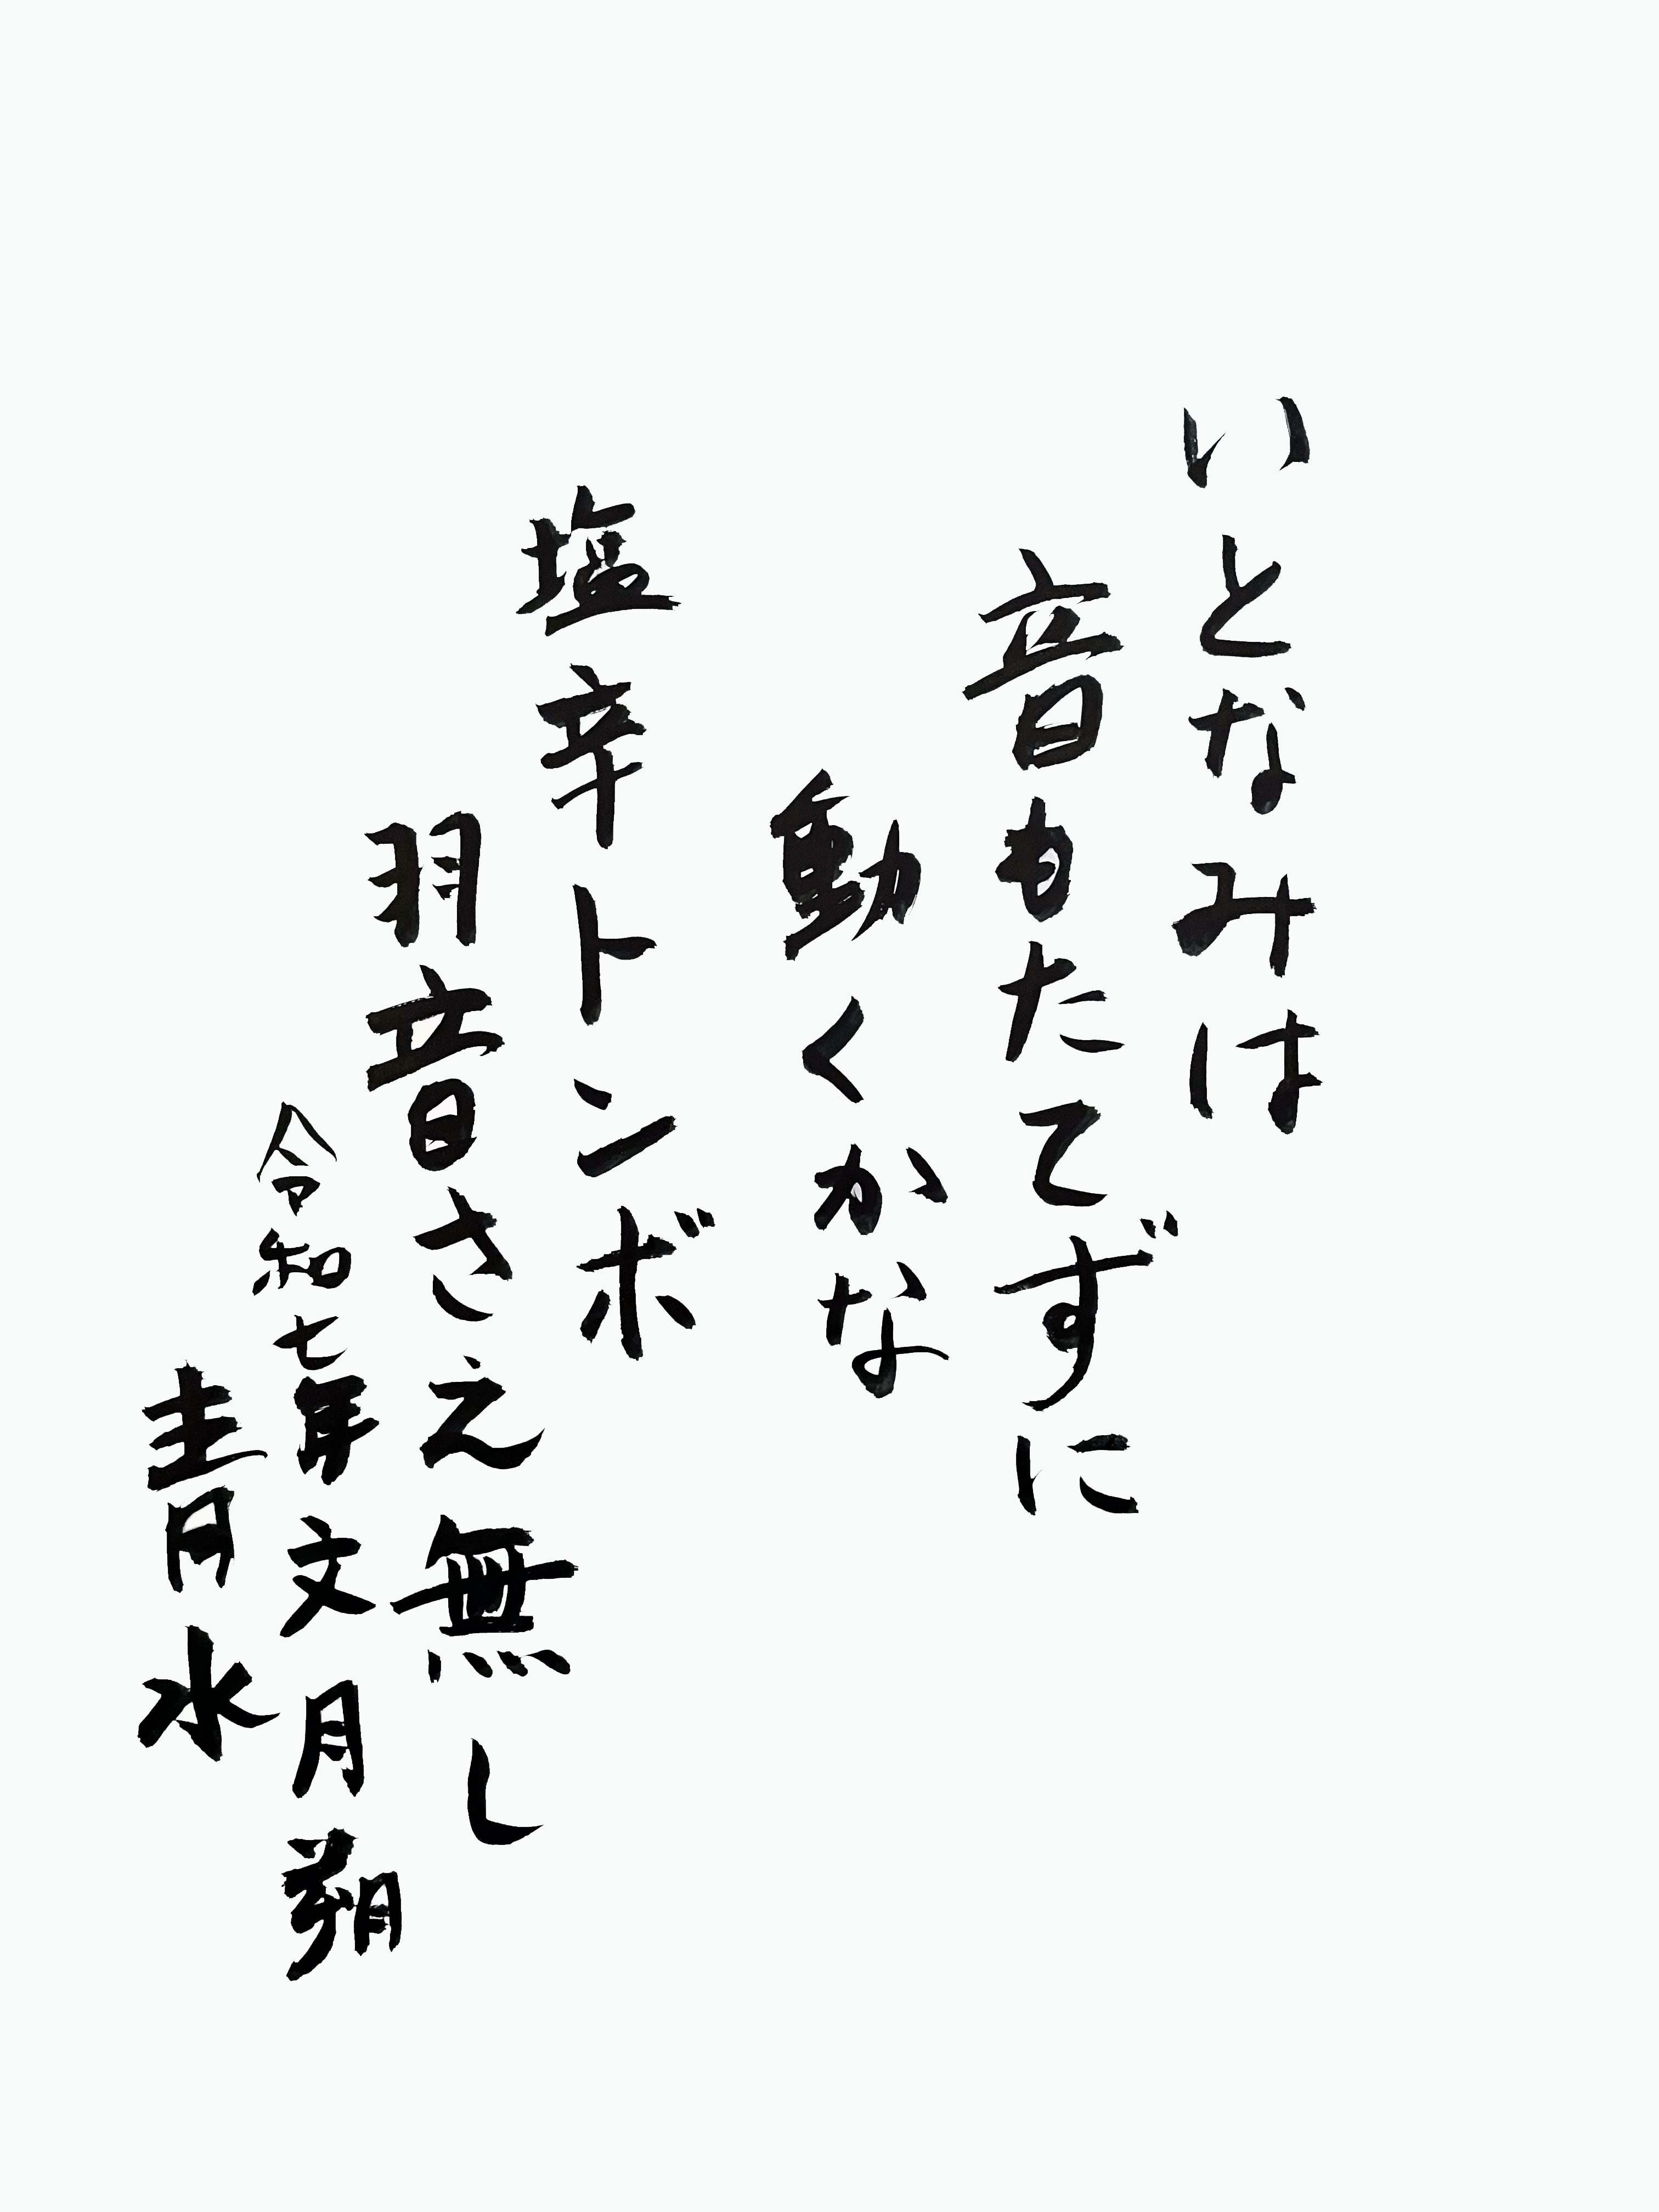 いとなみは
音もたてずに
動くかな
塩辛トンボ
羽音さえ無し
令和七年文月朔
青水